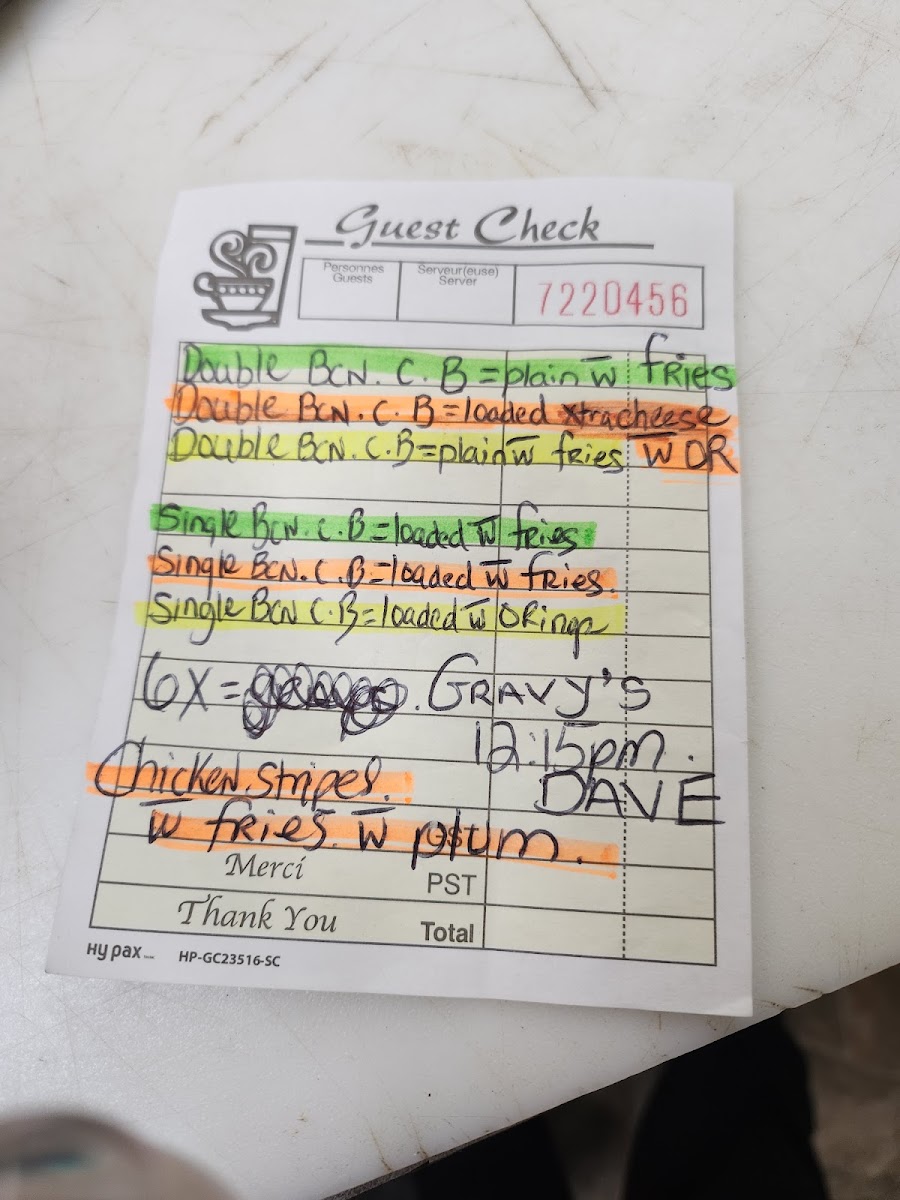 Guest Check
Personnes Guests
Serveur(euse) Server
7220456
Double BCN. C. B = plain w̅ fries
Double BCN. C. B = loaded xtracheese
w̅ OR
Double BCN. C.B = plain w̅ fries
Single BCN. C. B = loaded w̅ fries
Single BCN. C. B = loaded w̅ fries.
Single BCN C. B = loaded w̅ ORings
6X = GRAVY'S
12:15pm.
Chicken Stripes.
DAVE
w̅ fries. w̅ plum.
Merci
PST
Thank You
Total
Hy pax
HP-GC23516-SC